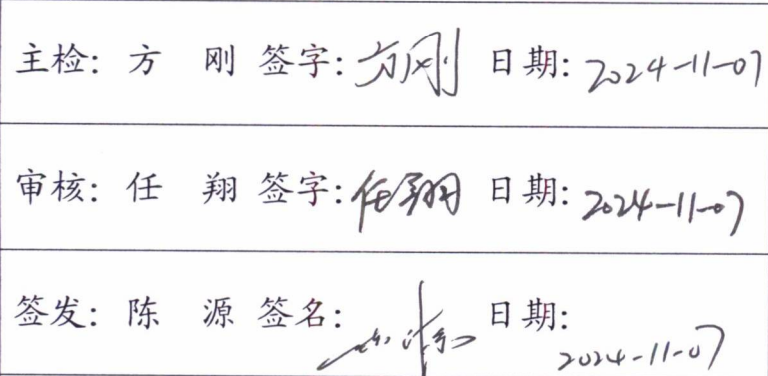 主检: 方 刚 签字: 方刚 日期: 2024-11-07
审核: 任 翔 签字: 任翔 日期: 2024-11-07
签发: 陈 源 签名: 日期: 2024-11-07